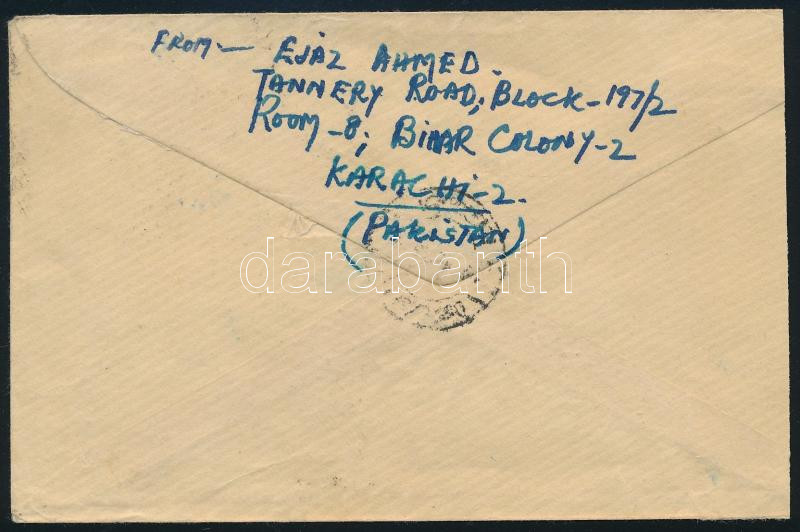 FROM — EJAZ AHMED.
TANNERY ROAD, BLOCK - 197/2
ROOM - 8, BIHAR COLONY - 2
KARACHI - 2.
(PAKISTAN)
darabanth